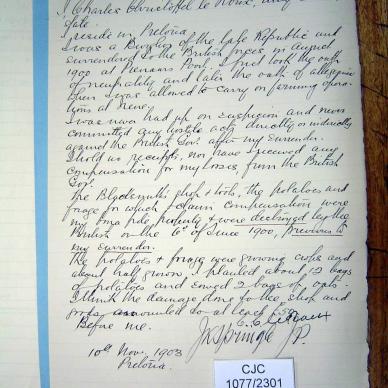 I Charles Christoffel le Roux, duly
state:
I reside in Pretoria
I was a Burgher of the late Republic and
surrendered to the British forces in August
1900 at Pienaars Poort. I first took the oath
of neutrality and later the oath of allegiance
when I was allowed to carry on farming opera-
tions at
I was never had up on suspicion and never
committed any hostile act directly or indirectly
against the British Govt after my surrender.
I hold no receipts, nor have I received any
compensation for my losses from the British
Govt.
The Blacksmith's shop & tools, the potatoes and
forage for which I claim compensation were
my bona fide property & were destroyed by the
British on the 6th of June 1900, previous to
my surrender.
The potatoes & forage were growing crops and
about half grown. I planted about 12 bags
of potatoes and sowed 2 bags of oats.
I think the damage done to the shop and
crops amounted to at least
Before me.
J.P.
10th Nov. 1903
Pretoria.
CJC
1077/2301